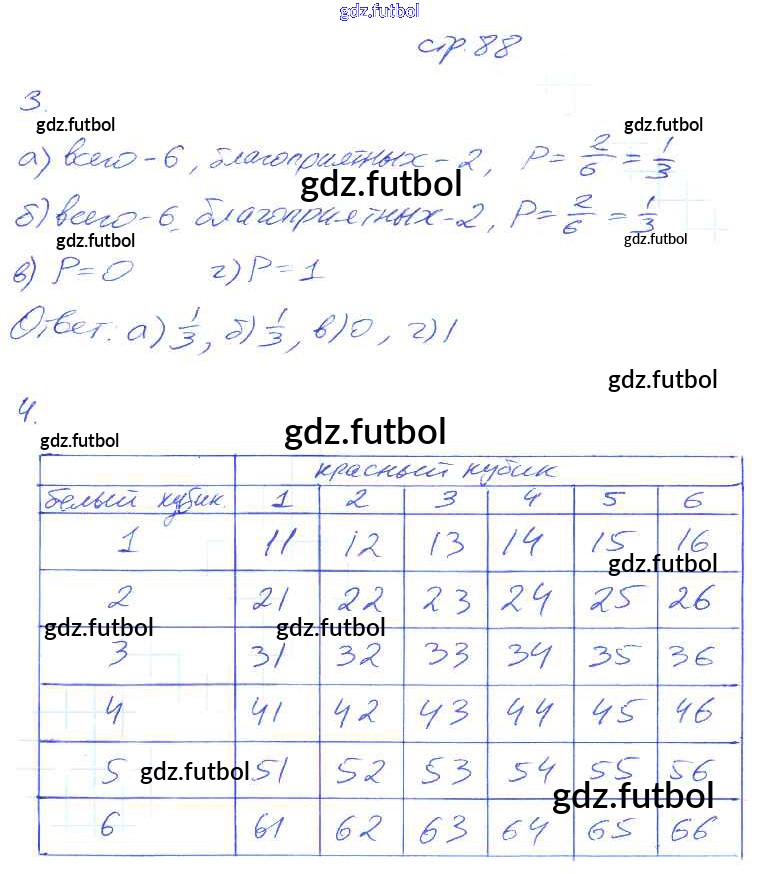 gdz.futbol
стр. 88
3.
gdz.futbol gdz.futbol
а) всего-6, благоприятных-2, P = 2/6 = 1/3
gdz.futbol
б) всего-6, благоприятных-2, P = 2/6 = 1/3
gdz.futbol gdz.futbol
в) P = 0 г) P = 1
Ответ: а) 1/3, б) 1/3, в) 0, г) 1
gdz.futbol
4.
gdz.futbol gdz.futbol
красный кубик
белый кубик. 1 2 3 4 5 6
1 11 12 13 14 15 16
gdz.futbol
2 21 22 23 24 25 26
gdz.futbol gdz.futbol
3 31 32 33 34 35 36
4 41 42 43 44 45 46
5 gdz.futbol 51 52 53 54 55 56
gdz.futbol
6 61 62 63 64 65 66